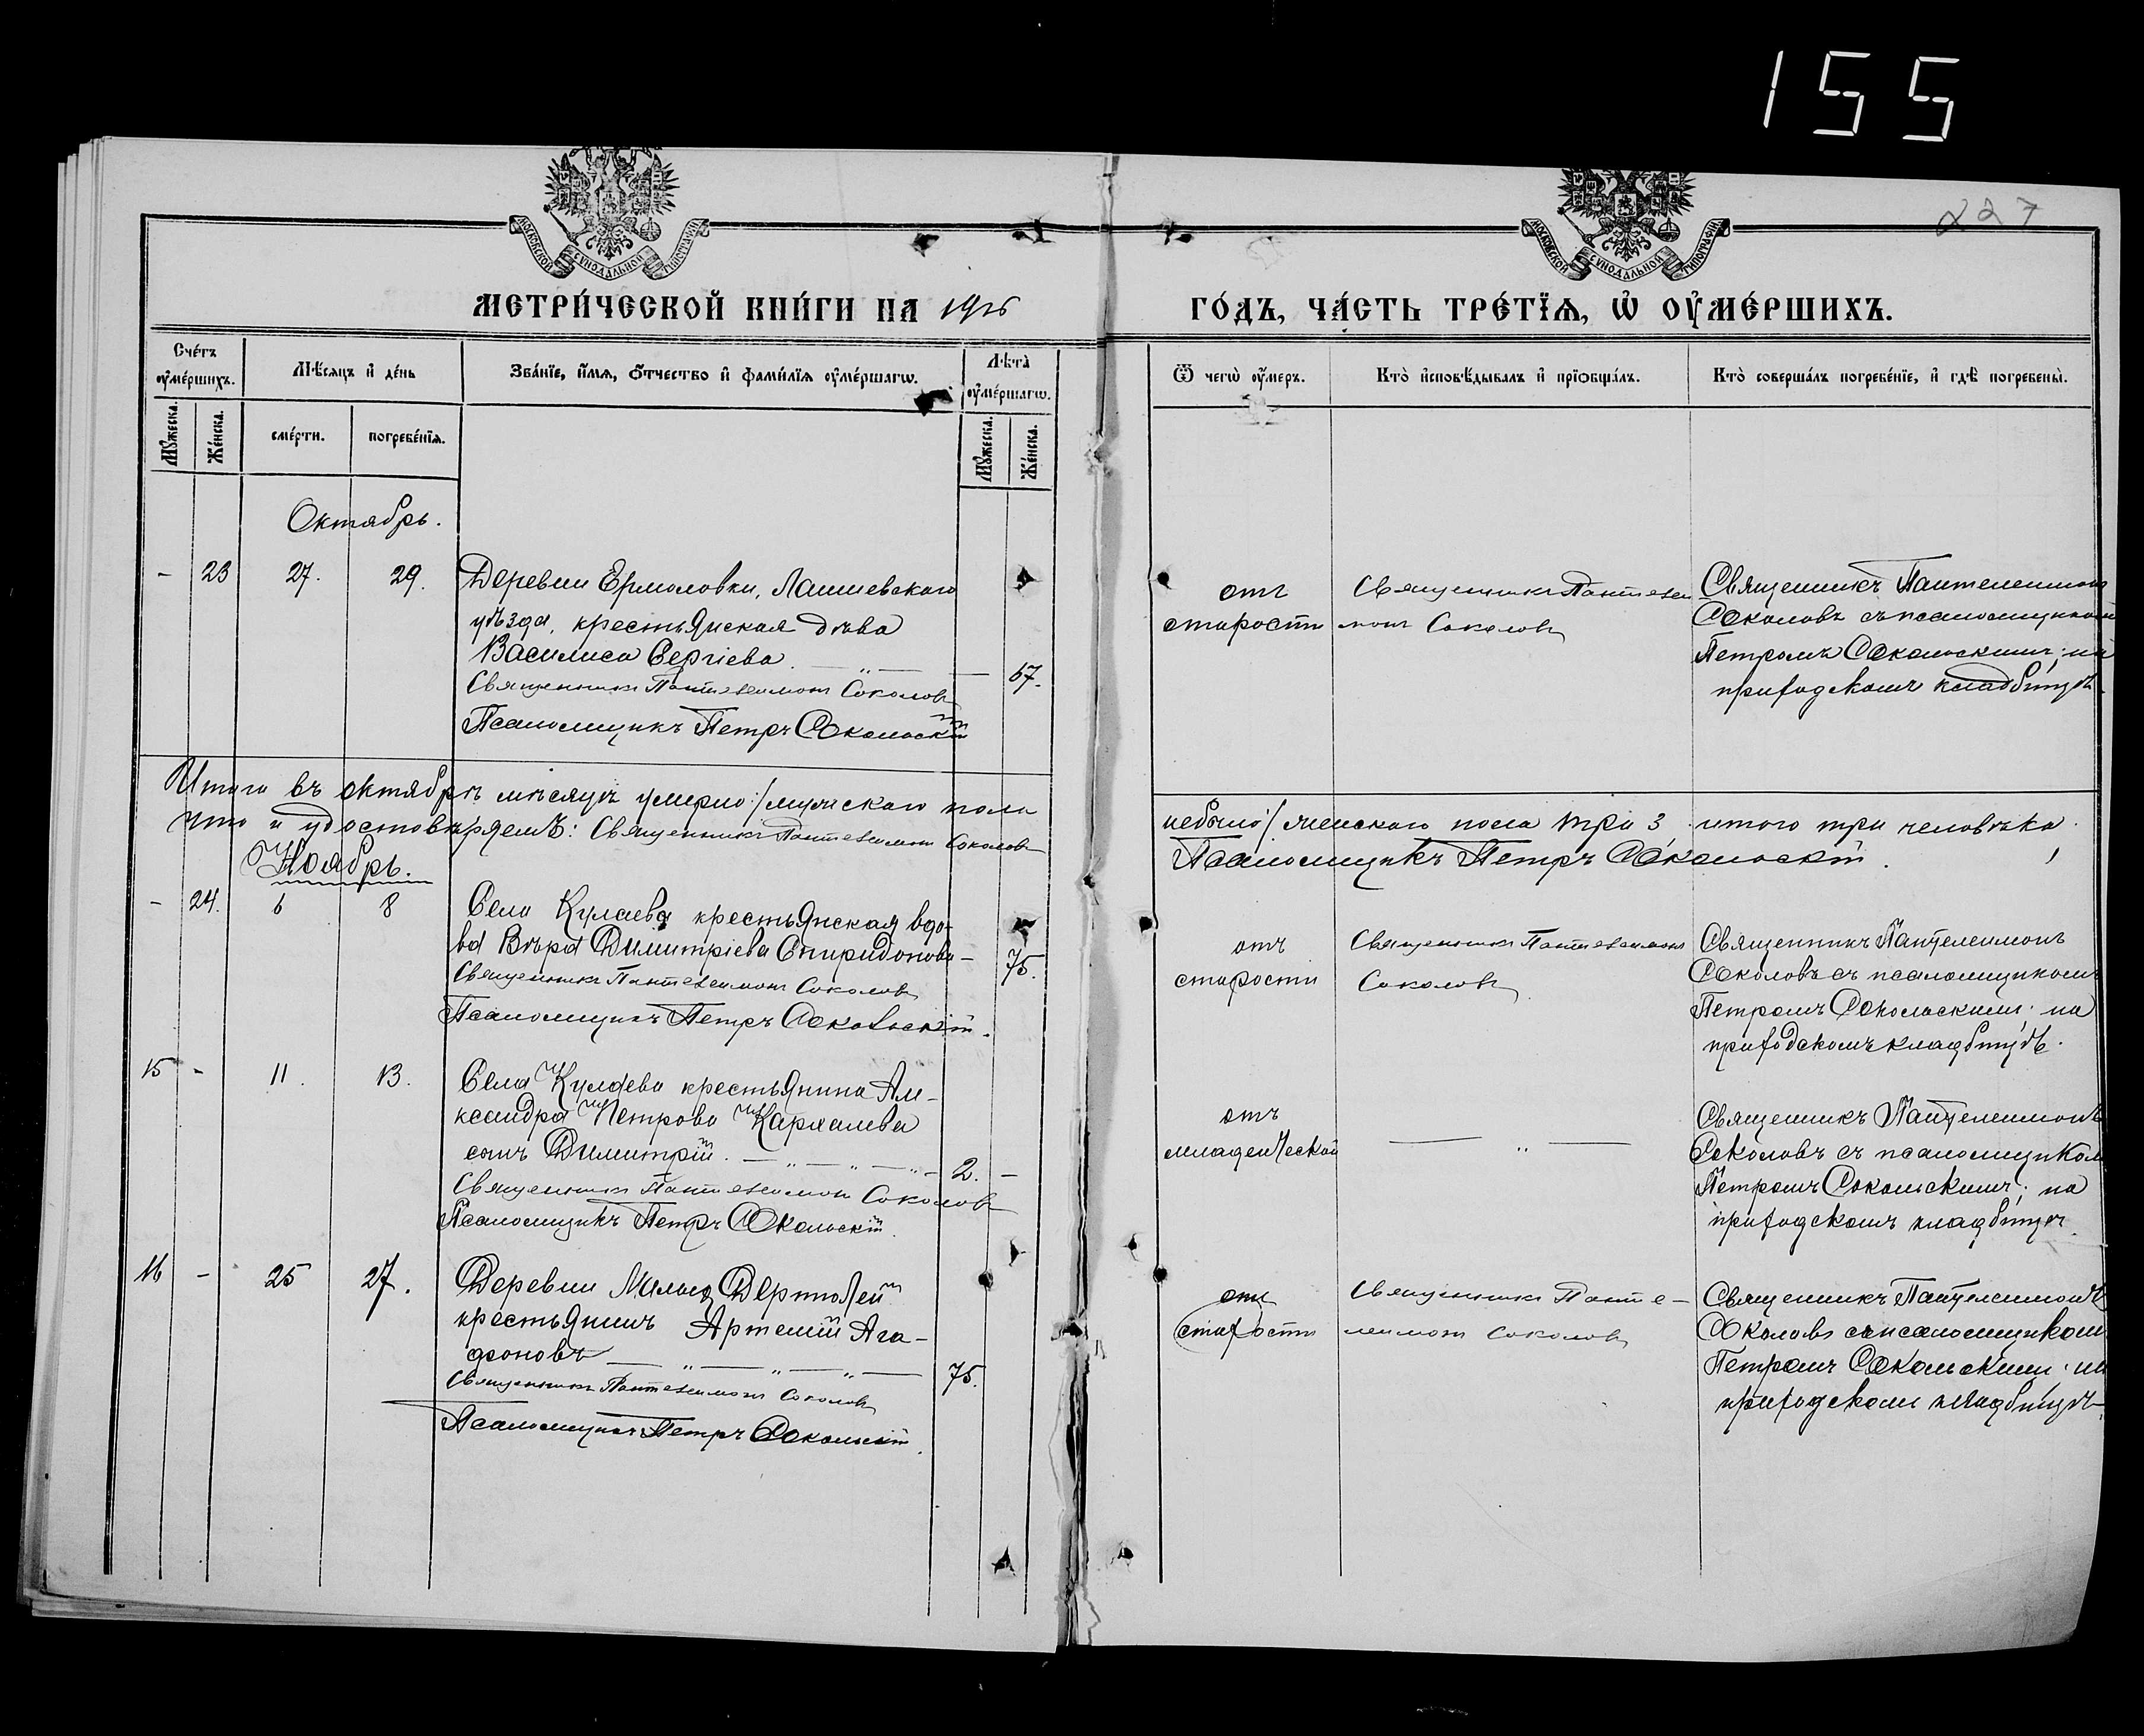 155
227
МОСКОВСКОЙ СУНОДАЛЬНОЙ ТИПОГРАФІИ
МОСКОВСКОЙ СУНОДАЛЬНОЙ ТИПОГРАФІИ
МЕТРИ́ЧЕСКОЙ КНИ́ГИ НА 1916
ГО́ДЪ, ЧА́СТЬ ТРЕ́ТІѦ, Ѡ ОУ҆МЕ́РШИХЪ.
Сче́тъ оу҆ме́ршихъ.
Мѣ́сяцъ и҆ де́нь
Зва́нїе, и҆́мѧ, ѻ҆́тчество и҆ фами́лїѧ оу҆ме́ршагѡ.
Лѣта̀ оу҆ме́ршагѡ.
Ѿ чегѡ̀ оу҆́меръ.
Кто̀ и҆сповѣ́дывалъ и҆ прїѻбща́лъ.
Кто̀ соверша́лъ погребе́нїе, и҆ гдѣ̀ погребены̀.
Мꙋ́жеска.
Же́нска.
сме́рти.
погребе́нїѧ.
Мꙋ́жеска.
Же́нска.
Октябрь.
- 23 27. 29.
Деревни Ермоловки, Лаишевскаго
уѣзда, крестьянская дѣва
Василиса Сергіева. — „ — — 67.
Священникъ Пантелеимонъ Соколовъ
Псаломщикъ Петръ Сокольскій
отъ
старости
Священникъ Пантелеи
монъ Соколовъ
Священникъ Пантелеимонъ
Соколовъ съ псаломщикомъ
Петромъ Сокольскимъ; на
приходскомъ кладбищѣ.
Итого въ октябрѣ мѣсяцѣ умерло:/мужскаго пола
небыло/ женскаго пола три 3 итого три человѣка.
что и удостовѣряемъ: Священникъ Пантелеимонъ Соколовъ
Псаломщикъ Петръ Сокольскій.
Ноябрь.
- 24. 6 8
Села Кулаева крестьянская вдо-
ва Вѣра Димитріева Спиридонова — 75.
Священникъ Пантелеимонъ Соколовъ
Псаломщикъ Петръ Сокольскій.
отъ
старости
Священникъ Пантелеимонъ
Соколовъ
Священникъ Пантелеимонъ
Соколовъ съ псаломщикомъ
Петромъ Сокольскимъ; на
приходскомъ кладбищѣ.
15 - 11. 13.
Села Кулаева крестьянина Але-
ксандра Петрова
сынъ Димитрій. — „ — „ — „ — 2. —
Священникъ Пантелеимонъ Соколовъ
Псаломщикъ Петръ Сокольскій.
отъ
младенческой
— „ —
Священникъ Пантелеимонъ
Соколовъ съ псаломщиком
Петромъ Сокольскимъ; на
приходскомъ кладбищѣ.
16 - 25 27.
Деревни Малыя Дертюлей
крестьянинъ Артемій Ага-
фоновъ — „ — „ — „ — 75.
Священникъ Пантелеимонъ Соколовъ
Псаломщикъ Петръ Сокольскій.
отъ
старости
Священникъ Панте-
леимонъ Соколовъ
Священникъ Пантелеимонъ
Соколовъ съ псаломщиком
Петромъ Сокольскимъ; на
приходском кладбищѣ.